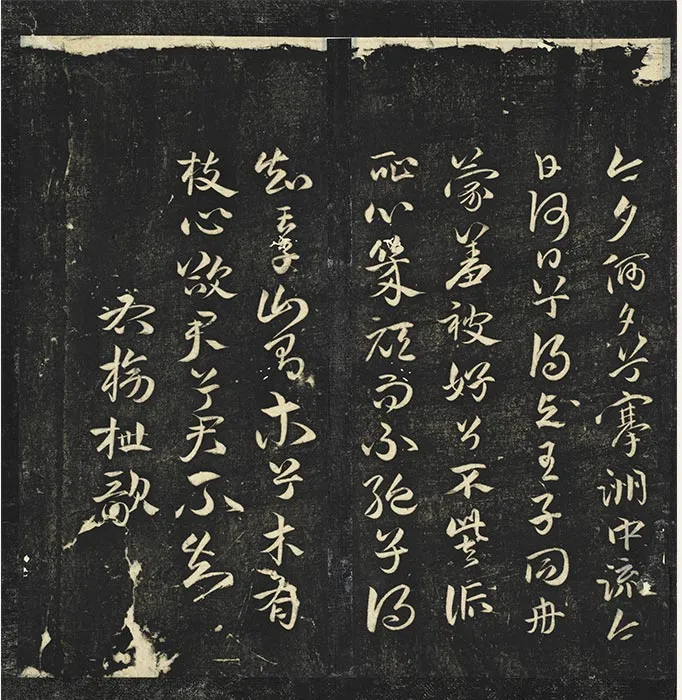 今夕何夕兮搴洲中流今
日何日兮得與王子同舟
蒙羞被好兮不訾詬
恥心幾頑而不絕兮得
知王子山有木兮木有
枝心欲君兮君不知
右榜枻歌